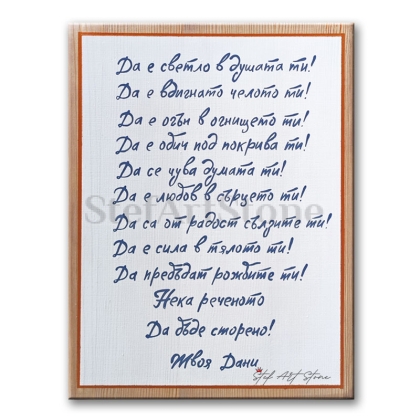 Да е светло в душата ти!
Да е вдигнато челото ти!
Да е огън в огнището ти!
Да е обич под покрива ти!
Да се чува думата ти!
Да е любов в сърцето ти!
StefArtStone
Да са от радост сълзите ти!
Да е сила в тялото ти!
Да пребъдат рожбите ти!
Нека реченото
Да бъде сторено!
Твоя Дани
Stef Art Stone